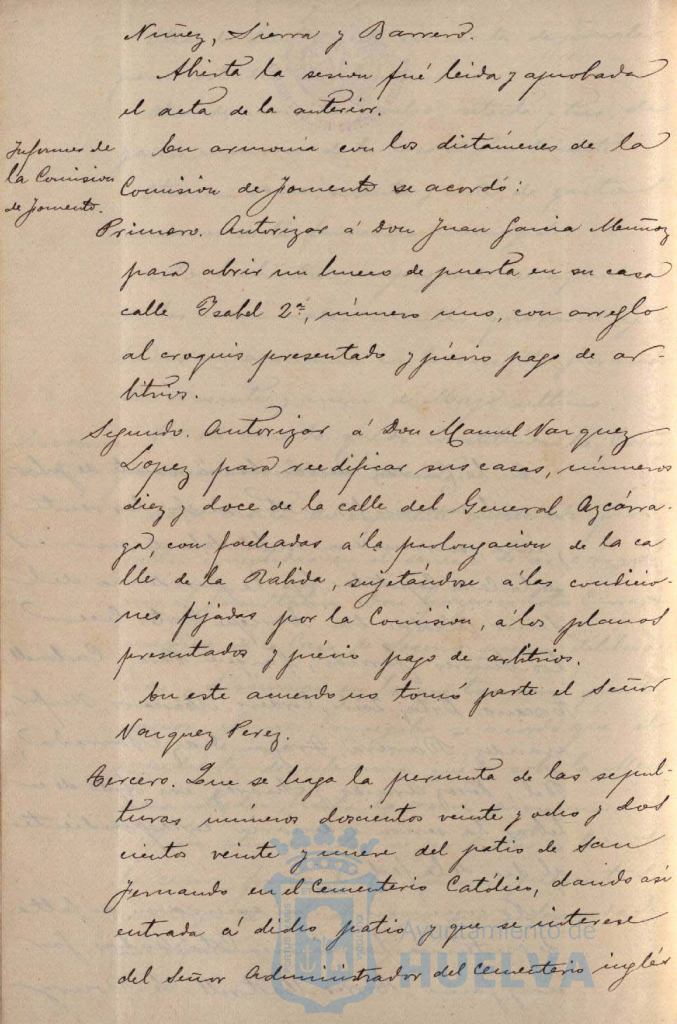 Nuñez, Sierra y Barrero.
Abierta la sesion fué leida y aprobada
el acta de la anterior.
Informes de
la Comision
de Fomento.
En armonia con los dictámenes de la
Comision de Fomento se acordó:
Primero. Autorizar á Don Juan Garcia Muñoz
para abrir un hueco de puerta en su casa
calle Isabel 2ª, número uno, con arreglo
al croquis presentado y prévio pago de ar-
bitrios.
Segundo. Autorizar á Don Manuel Vazquez
Lopez para reedificar sus casas, números
diez y doce de la calle del General Azcárra-
ga, con fachadas á la prolongacion de la ca
lle de la Rábida, sujetándose á las condicio-
nes fijadas por la Comision, á los planos
presentados y prévio pago de arbitrios.
En este acuerdo no tomó parte el Señor
Vazquez Perez.
Tercero. Que se haga la permuta de las sepul-
turas números doscientos veinte y ocho y dos
cientos veinte y nueve del patio de San
Fernando en el Cementerio Católico, dando así
entrada á dicho patio y que se interese
del Señor Administrador del Cementerio inglés
Ayuntamiento de
HUELVA